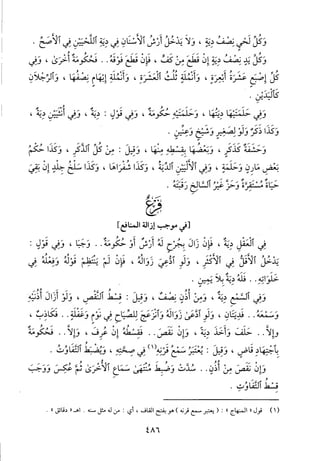 وَكُلِّ لَحْيٍ نِصْفُ دِيَةٍ ، وَلاَ يَدْخُلُ أَرْشُ الأَسْنَانِ فِي دِيَةِ ٱللَّحْيَيْنِ فِي ٱلأَصَحِّ .
وَكُلِّ يَدٍ نِصْفُ دِيَةٍ إِنْ قَطَعَ مِنْ كَفٍّ ، فَإِنْ قَطَعَ فَوْقَهُ .. فَحُكُومَةٌ أُخْرَىٰ ، وَفِي
كُلِّ إِصْبَعٍ عَشْرَةُ أَبْعِرَةٍ ، وَأَنْمُلَةٍ ثُلُثُ ٱلْعَشَرَةِ ، وَأَنْمُلَةِ إِبْهَامٍ نِصْفُهَا ، وَٱلرِّجْلاَنِ
كَٱلْيَدَيْنِ .
وَفِي حَلَمَتَيْهَا دِيَتُهَا ، وَحَلَمَتَيْهِ حُكُومَةٌ ، وَفِي قَوْلٍ : دِيَةٌ ، وَفِي أُنْثَيَيْنِ دِيَةٌ ،
وَكَذَا ذَكَرٌ وَلَوْ لِصَغِيرٍ وَشَيْخٍ وَعِنِّينٍ .
وَحَشَفَةٌ كَذَكَرٍ ، وَبَعْضُهَا بِقِسْطِهِ مِنْهَا ، وَقِيلَ : مِنْ كُلِّ ٱلذَّكَرِ ، وَكَذَا حُكْمُ
بَعْضِ مَارِنٍ وَحَلَمَةٍ ، وَفِي ٱلأَلْيَيْنِ ٱلدِّيَةُ ، وَكَذَا شُفْرَاهَا ، وَكَذَا سَلْخُ جِلْدٍ إِنْ بَقِيَ
حَيَاةٌ مُسْتَقِرَّةٌ وَحَزَّ غَيْرُ ٱلسَّالِخِ رَقَبَتَهُ .
فَرْعٌ
[في موجب إزالة المنافع]
فِي ٱلْعَقْلِ دِيَةٌ ، فَإِنْ زَالَ بِجُرْحٍ لَهُ أَرْشٌ أَوْ حُكُومَةٌ .. وَجَبَا ، وَفِي قَوْلٍ :
يَدْخُلُ ٱلأَقَلُّ فِي ٱلأَكْثَرِ ، وَلَوِ ٱدَّعَىٰ زَوَالَهُ ، فَإِنْ لَمْ يَنْتَظِمْ قَوْلُهُ وَفِعْلُهُ فِي
خَلَوَاتِهِ .. فَلَهُ دِيَةٌ بِلاَ يَمِينٍ .
وَفِي ٱلسَّمْعِ دِيَةٌ ، وَمِنْ أُذُنٍ نِصْفٌ ، وَقِيلَ : قِسْطُ ٱلنَّقْصِ ، وَلَوْ أَزَالَ أُذُنَيْهِ
وَسَمْعَهُ .. فَدِيَتَانِ ، وَلَوِ ٱدَّعَىٰ زَوَالَهُ وَٱنْزَعَجَ لِلصِّيَاحِ فِي نَوْمٍ وَغَفْلَةٍ .. فَكَاذِبٌ ،
وَإِلاَّ .. حَلَفَ وَأَخَذَ دِيَةً ، وَإِنْ نَقَصَ .. فَقِسْطُهُ إِنْ عُرِفَ ، وَإِلاَّ .. فَحُكُومَةٌ
بِٱجْتِهَادِ قَاضٍ ، وَقِيلَ : يُعْتَبَرُ سَمْعُ قَرْنِهِ (١) فِي صِحَّتِهِ ، وَيُضْبَطُ ٱلتَّفَاوُتُ .
وَإِنْ نَقَصَ مِنْ أُذُنٍ .. سُدَّتْ وَضُبِطَ مُنْتَهَىٰ سَمَاعِ ٱلأُخْرَىٰ ثُمَّ عُكِسَ وَوَجَبَ
قِسْطُ ٱلتَّفَاوُتِ .
(١) قول « المنهاج » : ( يعتبر سمع قرنه ) هو بفتح القاف ، أي : من له مثل سنه . اهـ « دقائق » .
٤٨٦